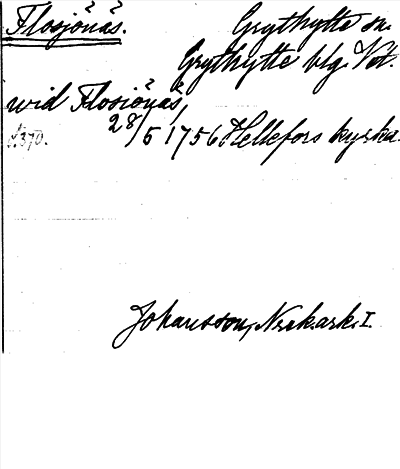 Flosjönäs. Grythytte sn.
Grythytte blg. Vst.
wid Flosiönäs,
28/5 1756 Hellefors kyrka.
s. 370.
Johansson, Nrak.ark. I.